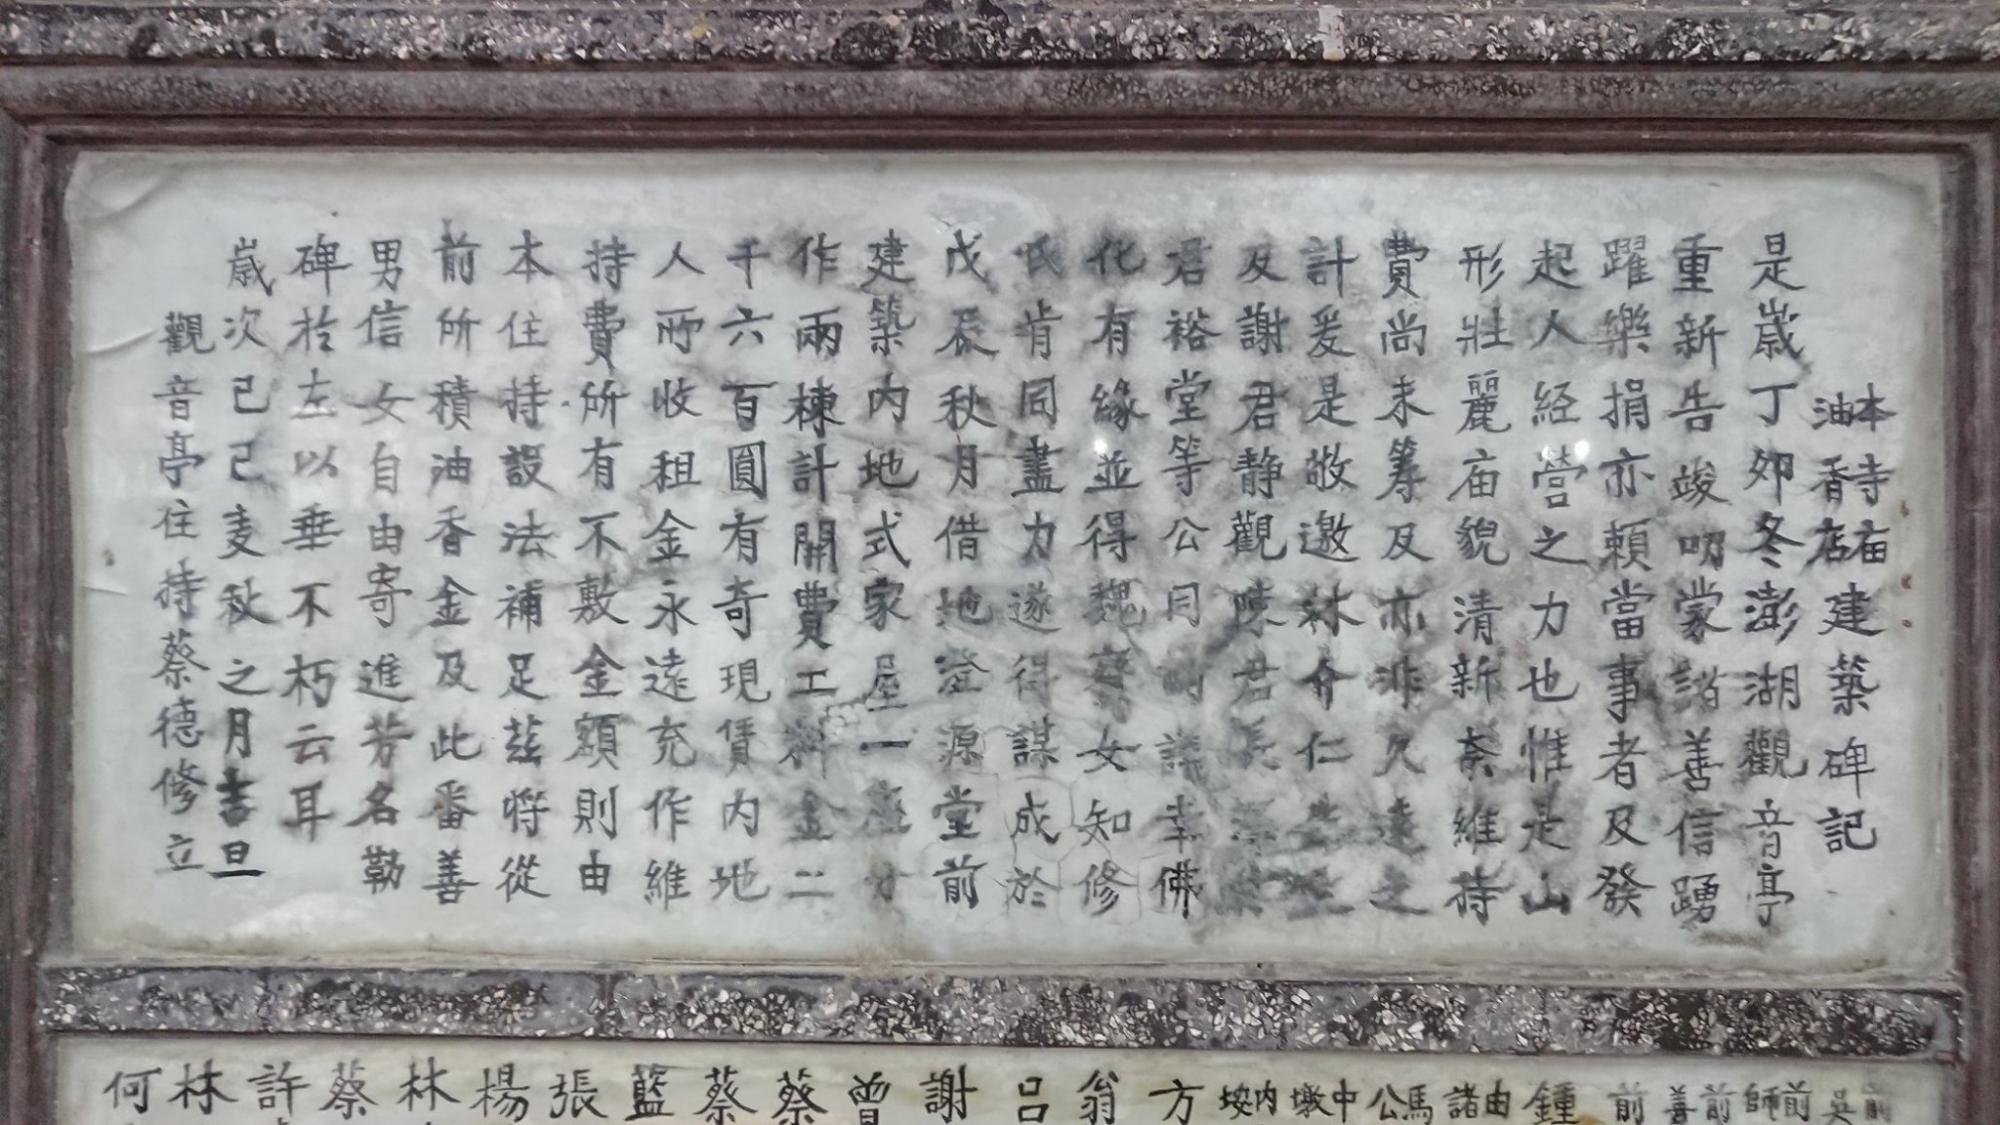 本寺庙油香店建築碑記
是歲丁卯冬澎湖觀音亭
重新告竣叨蒙諸善信踴
躍樂捐亦賴當事者及發
起人経營之力也惟是山
形壯麗庙貌清新奈維持
費尚未筹及亦非久遠之
計爰是敬邀林介仁
及謝君静觀陳君長
君裕堂等公同議幸佛
化有緣並得魏齋女知修
氏肯同盡力遂得謀成於
戊辰秋月借地澄源堂前
建築内地式家屋一座分
作兩棟計開費工料金二
千六百圓有奇現賃内地
人所收租金永遠充作維
持費所有不敷金額則由
本住持設法補足茲将從
前所積油香金及此番善
男信女自由寄進芳名勒
碑於左以垂不朽云耳
歲次己巳麦秋之月吉旦
觀音亭住持蔡德修立
前吳
前師
前善
前
鍾
由諸
馬公
中墩
内垵
方
翁
吕
謝
曾
蔡
蔡
藍
張
楊
林
蔡
許
林
何